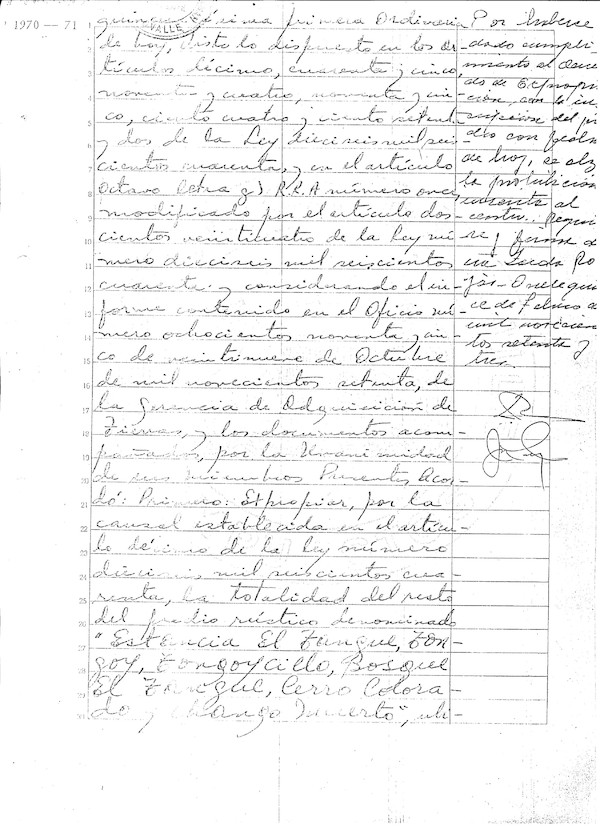 1970 — 71
VALLE
primera Ordinaria
de hoy, visto lo dispuesto en los ar-
tículos décimo, cuarenta y cinco,
noventa y cuatro, noventa y cin-
co, ciento cuatro y ciento setent
y dos de la Ley dieciseis mil seis-
cientos cuarenta, y en el artículo
Octavo letra g) R.R.A número once,
modificado por el artículo dos-
cientos veinticuatro de la Ley nú-
mero dieciseis mil seiscientos
cuarenta y considerando el in-
forme contenido en el Oficio nú-
mero ochocientos noventa y cin-
co de veintinueve de Octubre
de mil novecientos setenta, de
la Gerencia de Adquisición de
Tierras, y los documentos acom-
pañados, por la Unanimidad
de sus miembros Presentes Acor-
dó: Primero: Expropiar, por la
causal establecida en el artícu-
lo décimo de la Ley número
dieciseis mil seiscientos cua-
renta, la totalidad del resto
del predio rústico denominado
"Estancia El Tangue, Ton-
goy, Tongoycillo, Bosque
El Tangue, Cerro Colora-
do y Chango Muerto", ubi-
Por haberse
dado cumpli-
miento al
de Expropia
ción, con la ins
cripción del pre
dio con fecha
de hoy, se alz
la prohibición
al
centro.
y forma d
Once
ce de Febrero de
mil novecien
tos setenta y
tres.